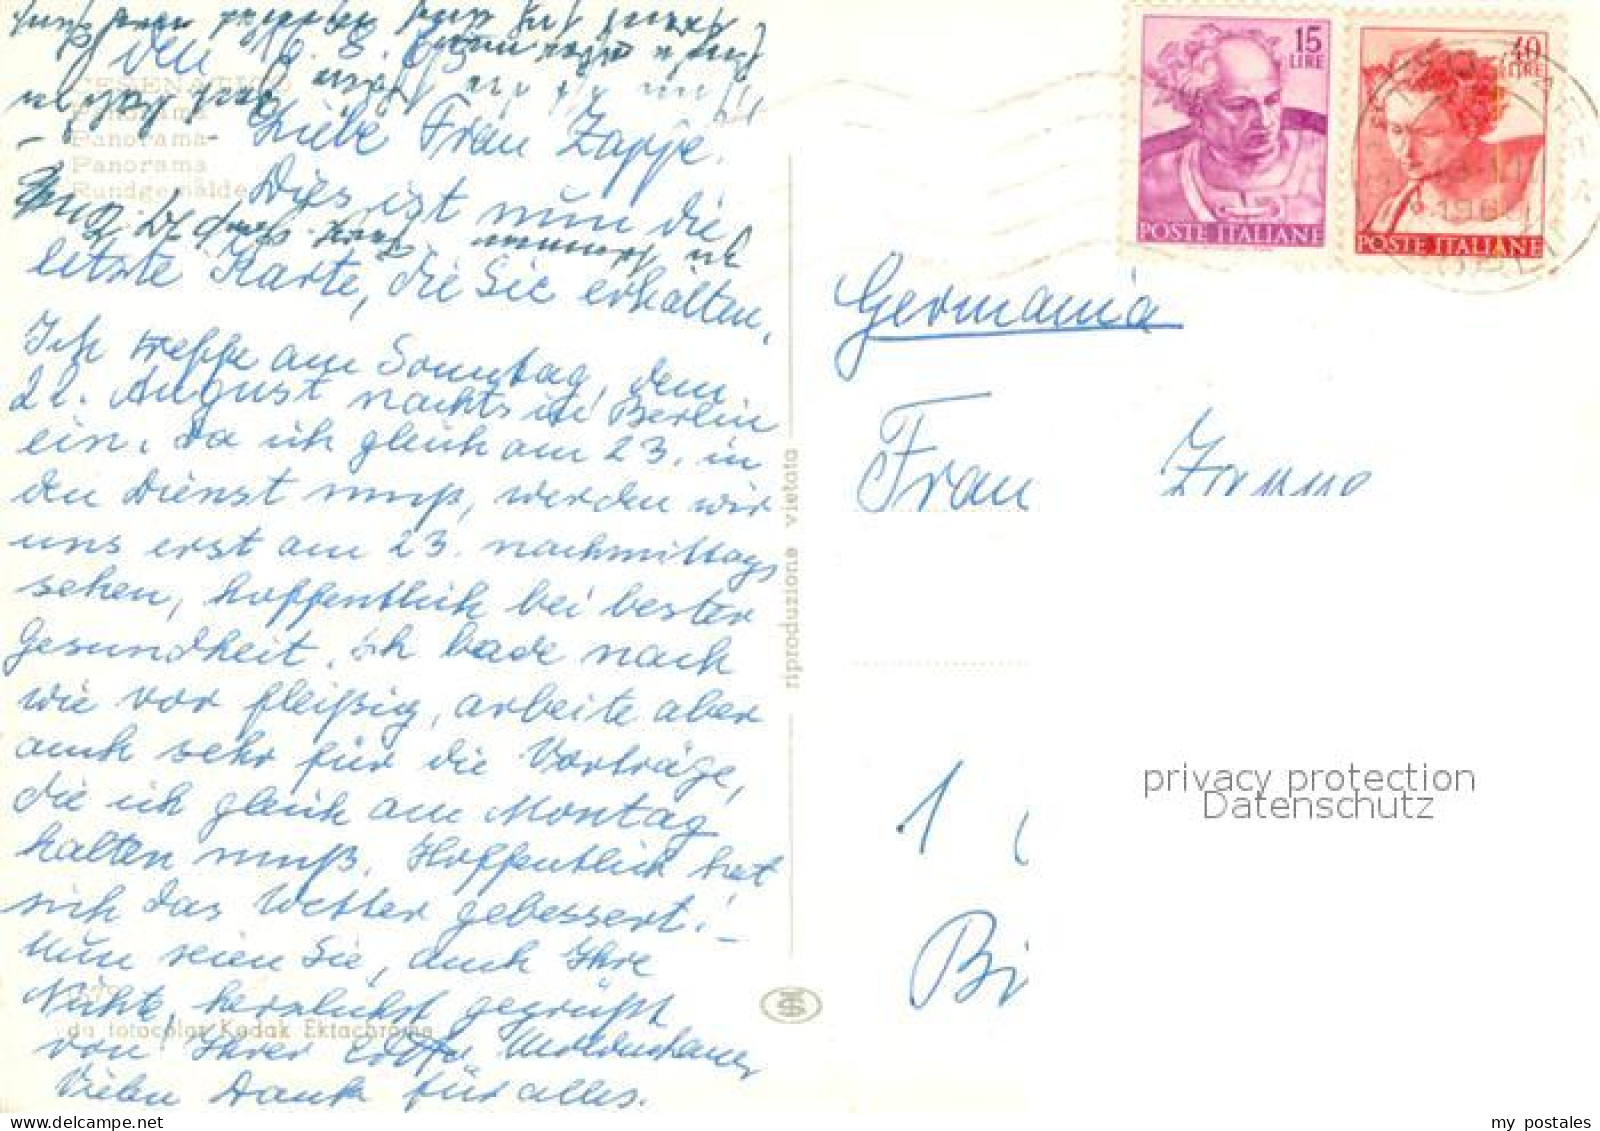 den 16. 8. 65
CESENATICO
Panorama
Panorama
Panorama
Rundgemälde
Liebe Frau Zappe.
Dies ist nun die
letzte Karte, die Sie erhalten.
Ich treffe am Sonntag, dem
22. August nachts in Berlin
ein. Da ich gleich am 23. in
den Dienst muß, werden wir
uns erst am 23. nachmittags
sehen, hoffentlich bei bester
Gesundheit. Ich bade nach
wie vor fleißig, arbeite aber
auch sehr für die Vorträge,
die ich gleich am Montag
halten muß. Hoffentlich hat
sich das Wetter gebessert! –
Nun seien Sie, auch Ihre
Nichte, herzlichst gegrüßt
da fotocolor Kodak Ektachrome
von Ihrer
Vielen Dank für alles.
riproduzione vietata
15
LIRE
POSTE ITALIANE
40
LIRE
POSTE ITALIANE
Germania
Frau
1
Bi
privacy protection
Datenschutz
my postales